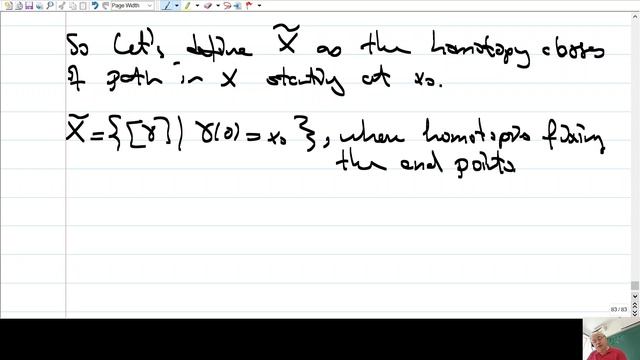 Page Width
So let's define X̃ as the homotopy classes
of path in X starting at x₀.
X̃ = {[γ] | γ(0) = x₀}, where homotopies fixing
the end points
83 / 83